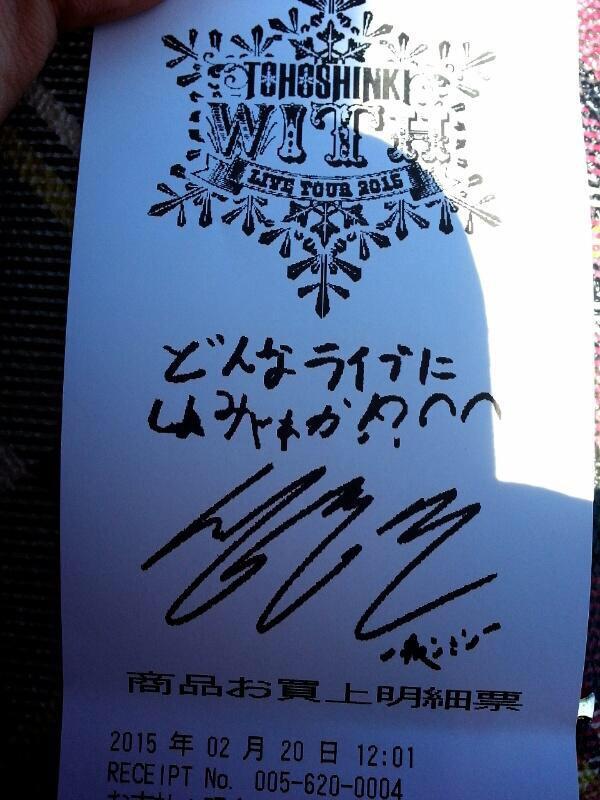 TOHOSHINKI
WITH
LIVE TOUR 2015
どんなライブに
しようか!?^^
商品お買上明細票
2015 年 02 月 20 日 12:01
RECEIPT No. 005-620-0004